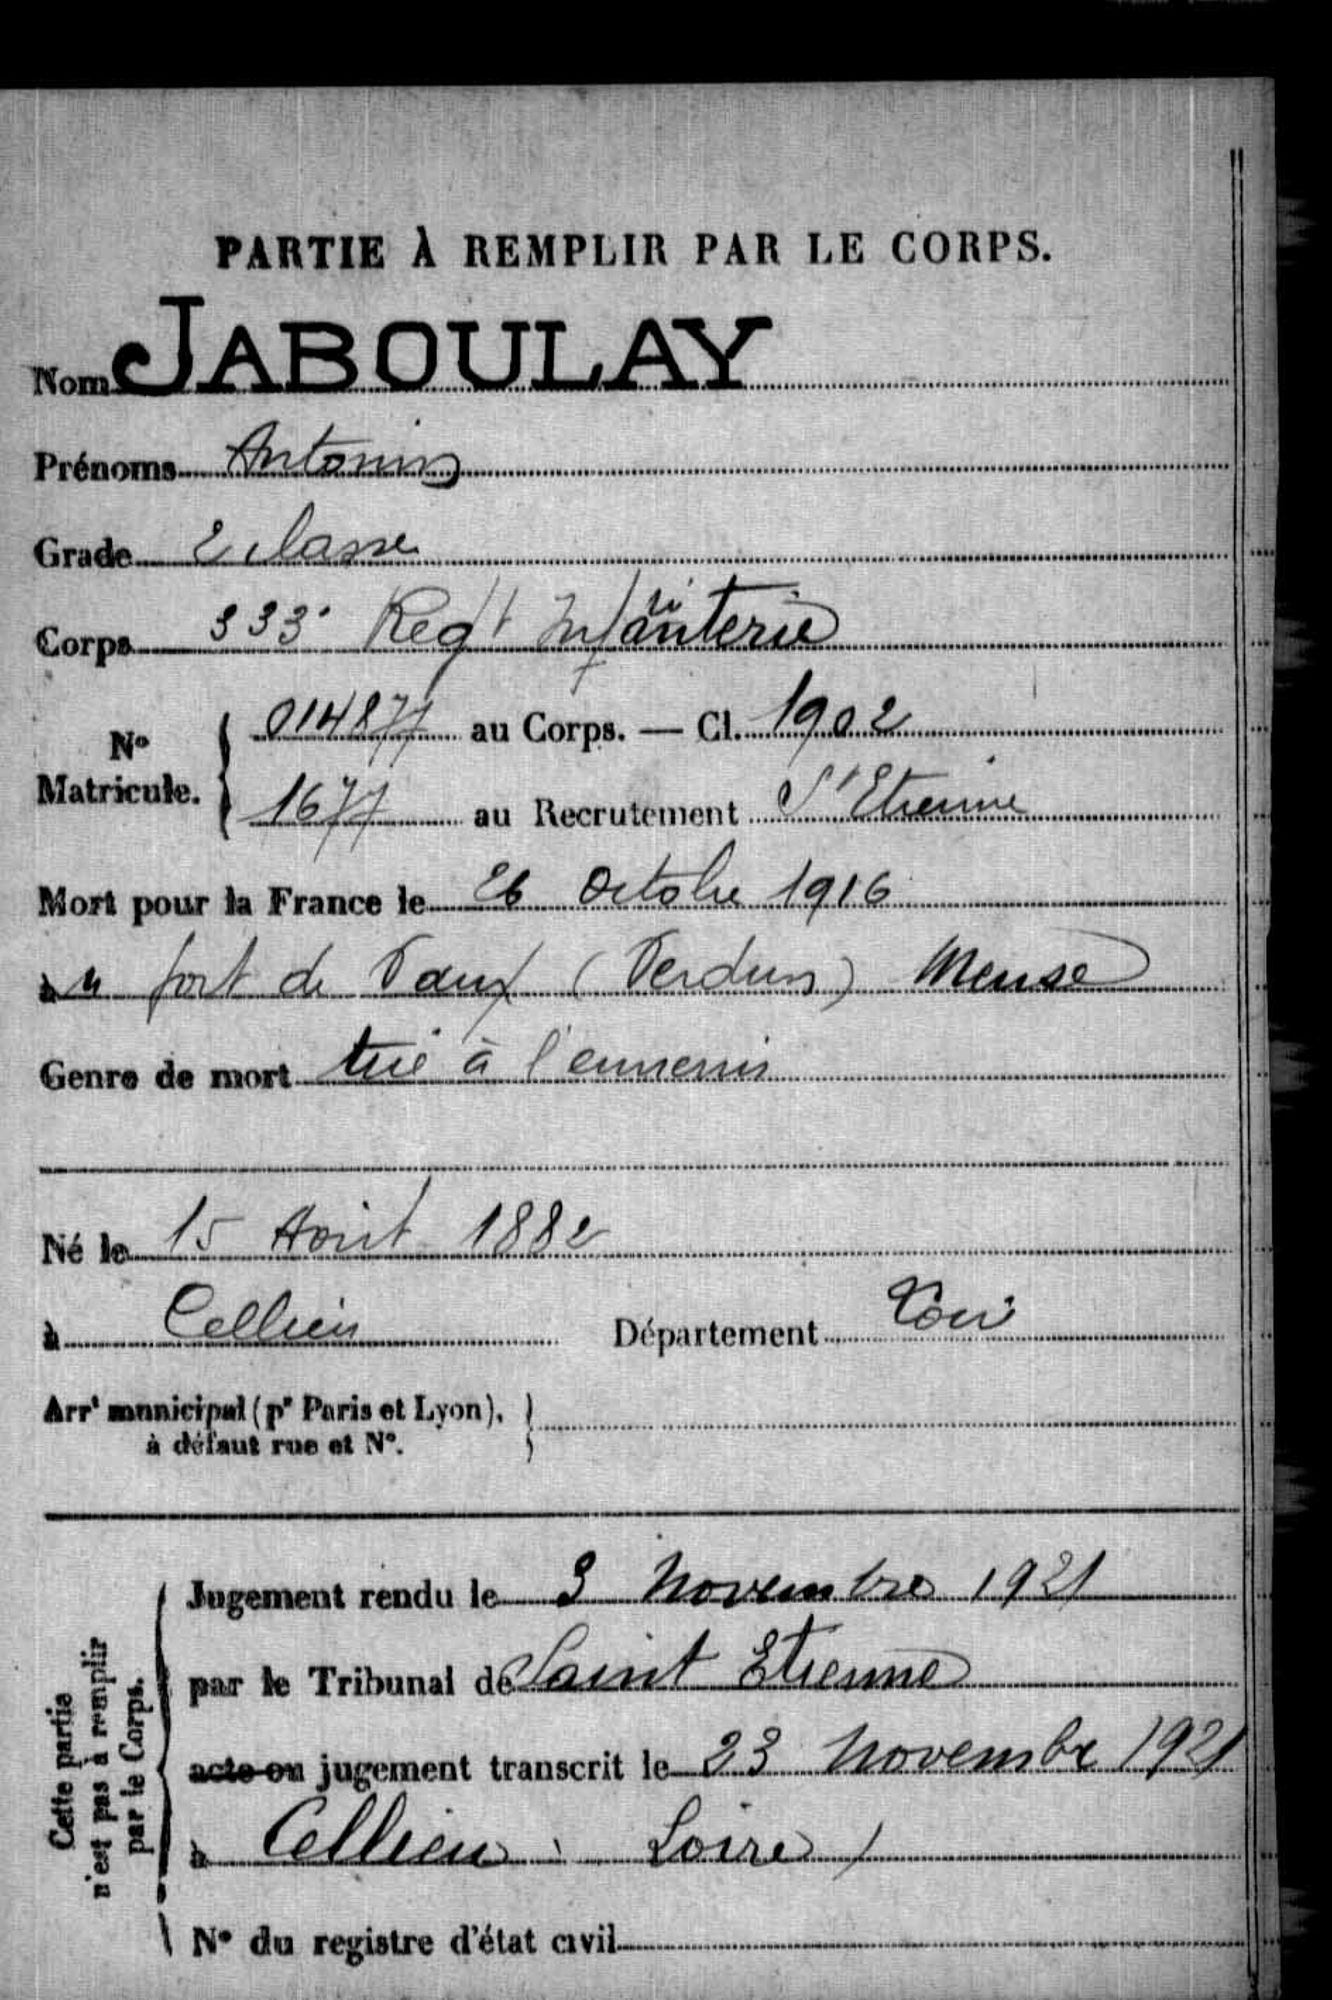 PARTIE À REMPLIR PAR LE CORPS.
Nom JABOULAY
Prénoms Antonin
Grade 2 classe
Corps 333e Regt Infanterie
No Matricule. 014877 au Corps. — Cl. 1902
1677 au Recrutement St Etienne
Mort pour la France le 26 Octobre 1916
au fort de Vaux (Verdun) Meuse
Genre de mort tué à l'ennemi
Né le 15 Août 1882
à Cellieu Département Loire
Arrt municipal (pr Paris et Lyon), à défaut rue et No.
Cette partie n'est pas à remplir par le Corps.
Jugement rendu le 3 Novembre 1921
par le Tribunal de Saint Etienne
acte ou jugement transcrit le 23 Novembre 1921
à Cellieu (Loire)
No du registre d'état civil